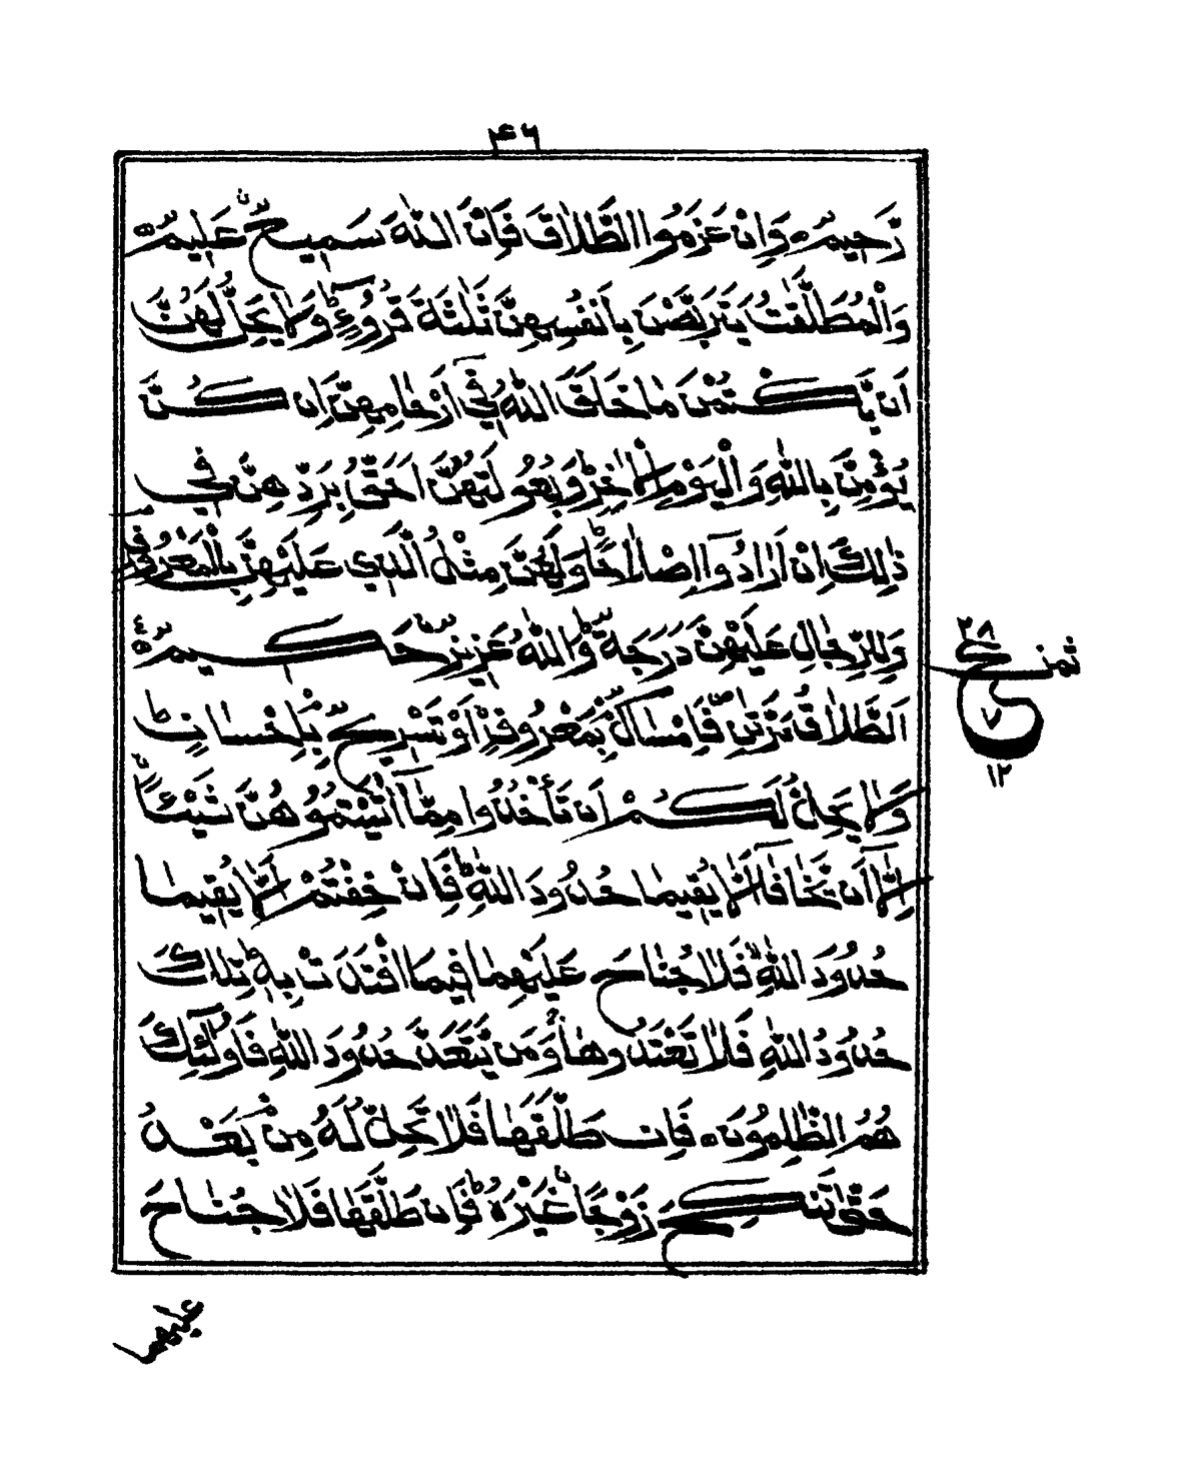 ۴٦
رَّحِيمٌ ۝ وَاِنْ عَزَمُوا الطَّلَاقَ فَاِنَّ اللّٰهَ سَمِيعٌ عَلِيمٌ ۝
وَالْمُطَلَّقٰتُ يَتَرَبَّصْنَ بِاَنْفُسِهِنَّ ثَلٰثَةَ قُرُوْٓءٍ ؕ وَلَا يَحِلُّ لَهُنَّ
اَنْ يَّكْتُمْنَ مَا خَلَقَ اللّٰهُ فِيْٓ اَرْحَامِهِنَّ اِنْ كُنَّ
يُؤْمِنَّ بِاللّٰهِ وَالْيَوْمِ الْاٰخِرِ ؕ وَبُعُوْلَتُهُنَّ اَحَقُّ بِرَدِّهِنَّ فِيْ
ذٰلِكَ اِنْ اَرَادُوْٓا اِصْلَاحًا ؕ وَلَهُنَّ مِثْلُ الَّذِيْ عَلَيْهِنَّ بِالْمَعْرُوْفِ
وَلِلرِّجَالِ عَلَيْهِنَّ دَرَجَةٌ ؕ وَاللّٰهُ عَزِيْزٌ حَكِيْمٌ ۝ ع
اَلطَّلَاقُ مَرَّتٰنِ فَاِمْسَاكٌ بِمَعْرُوْفٍ اَوْ تَسْرِيْحٌ بِاِحْسَانٍ ؕ
وَلَا يَحِلُّ لَكُمْ اَنْ تَأْخُذُوْا مِمَّآ اٰتَيْتُمُوْهُنَّ شَيْـًٔا
اِلَّآ اَنْ يَّخَافَآ اَلَّا يُقِيْمَا حُدُوْدَ اللّٰهِ ؕ فَاِنْ خِفْتُمْ اَلَّا يُقِيْمَا
حُدُوْدَ اللّٰهِ ۙ فَلَا جُنَاحَ عَلَيْهِمَا فِيْمَا افْتَدَتْ بِهٖ ؕ تِلْكَ
حُدُوْدُ اللّٰهِ فَلَا تَعْتَدُوْهَا ۚ وَمَنْ يَّتَعَدَّ حُدُوْدَ اللّٰهِ فَاُولٰٓئِكَ
هُمُ الظّٰلِمُوْنَ ۝ فَاِنْ طَلَّقَهَا فَلَا تَحِلُّ لَهٗ مِنْۢ بَعْدُ
حَتّٰى تَنْكِحَ زَوْجًا غَيْرَهٗ ؕ فَاِنْ طَلَّقَهَا فَلَا جُنَاحَ
ثمن
٢٨
ع
٧
١٢
عليهما